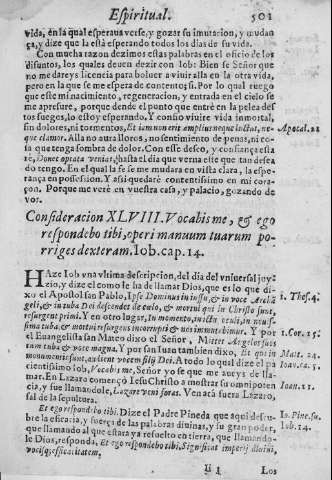 Espiritual. 501
vida, en la qual esperava verse, y gozar su imutacion, y mudan
ça, y dize que la està esperando todos los dias de su vida.
Con mucha razon dezimos estas palabras en el oficio de los
difuntos, los quales deven dezir con Iob: Bien se Señor que
no me dareys licencia para bolver a vivir alla en la otra vida,
pero en la que se me espera de contentos si. Por lo qual ruego
que este mi nacimiento, regeneracion, y entrada en el cielo se
me apresure, porque dende el punto que entrè en la pelea des
tos fuegos, lo estoy esperando. Y confio vivire vida inmortal,
sin dolores, ni tormentos, Et iam non erit amplius neque luctus, ne-
que clamor. Alla no aura lloros, no sentimiento de penas, ni co Apocal. 21
sa que tenga sombra de dolor. Con este deseo, y confiança esta
rè, Donec optata veniat, hasta el dia que verna este que tan desea
do tengo. En el qual la fe se me mudara en vista clara, la espe-
rança en possession. Y asi quedarè contentissimo en mi cora-
çon. Porque me verè en vuestra casa, y palacio, gozando de
vos.
Consideracion XLVIII. Vocabis me, & ego
respondebo tibi, operi manuum tuarum po-
rriges dexteram. Iob. cap. 14.
HAze Iob vna vltima descripcion, del dia del vniversal joy-
zio, y dize el como le ha de llamar Dios, que es lo que di-
xo el Apostol san Pablo, Ipse Dominus in iussu, & in voce Archã 1. Thes. 4.
geli, & in tuba Dei descendet de cœlo, & mortui qui in Christo sunt,
resurgent primi. Y en otro lugar, In momento, in ictu oculi, in novis-
sima tuba, & mortui resurgent incorrupti & nos immutabimur. Y por 1. Cor. 15.
el Euangelista san Mateo dixo el Señor, Mittet Angelos suos
cum tuba & voce magna. Y por san Iuan tambien dixo, Et qui in Mat. 24.
monumentis sunt, audient vocem filij Dei. A todo lo qual dize el pa Ioan. ca. 5.
cientissimo Iob, Vocabis me, Señor yo se que me aueys de lla-
mar. En Lazaro començò Iesu Christo a mostrar su omnipoten Ioan. 11.
cia, y fue llamandole, Lazare veni foras. Venacà fuera Lazaro,
sal de la sepultura.
Et ego respondebo tibi. Dize el Padre Pineda que aqui descu- Io. Pine. su.
bre la eficacia, y fuerça de las palabras divinas, y su gran poder, Iob. 14.
que llamando al que estara ya resuelto en tierra, que llamando-
le Dios, responda, Et ego respondebo tibi. Significat imperij divini,
vocisq; efficacitatem,
Ii 3 Los